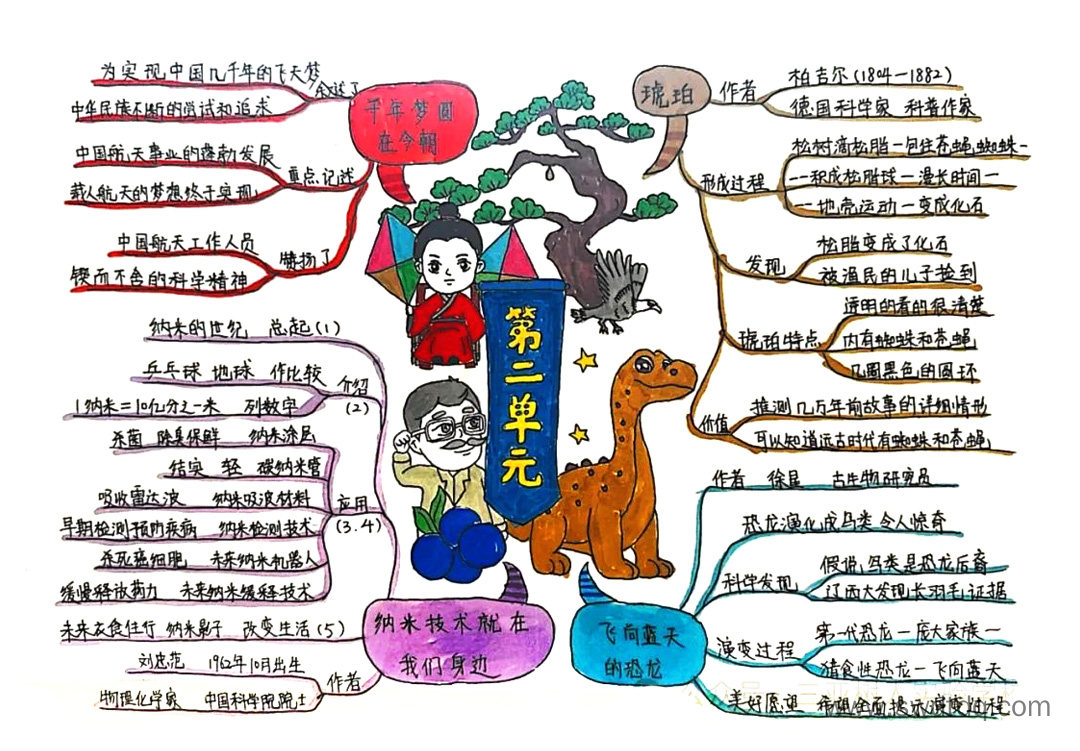 千年梦圆
在今朝
叙述了
为实现中国几千年的飞天梦
中华民族不断的尝试和追求
重点记述
中国航天事业的蓬勃发展
载人航天的梦想终于实现
赞扬了
中国航天工作人员
锲而不舍的科学精神
第二单元
琥珀
作者
柏吉尔(1804—1882)
德国科学家 科普作家
形成过程
松树滴松脂—包住苍蝇蜘蛛—
—积成松脂球—漫长时间—
—地壳运动—变成化石
发现
松脂变成了化石
被渔民的儿子捡到
琥珀特点
透明的看的很清楚
内有蜘蛛和苍蝇
几圈黑色的圆环
价值
推测几万年前故事的详细情形
可以知道远古时代有蜘蛛和苍蝇
纳米技术就在
我们身边
纳米的世纪 总起(1)
介绍
(2)
乒乓球 地球 作比较
1纳米=10亿分之一米 列数字
应用
(3.4)
杀菌 除臭保鲜 纳米涂层
结实 轻 碳纳米管
吸收雷达波 纳米吸波材料
早期检测预防疾病 纳米检测技术
杀死癌细胞 未来纳米机器人
缓慢释放药力 未来纳米缓释技术
未来衣食住行 纳米影子 改变生活(5)
作者
刘忠范 1962年10月出生
物理化学家 中国科学院院士
飞向蓝天
的恐龙
作者 徐星 古生物研究员
恐龙演化成鸟类 令人惊奇
科学发现
假说,鸟类是恐龙后裔
辽西大发现长羽毛证据
演变过程
第一代恐龙—庞大家族—
猎食性恐龙—飞向蓝天
美好愿望 希望全面揭示演变过程